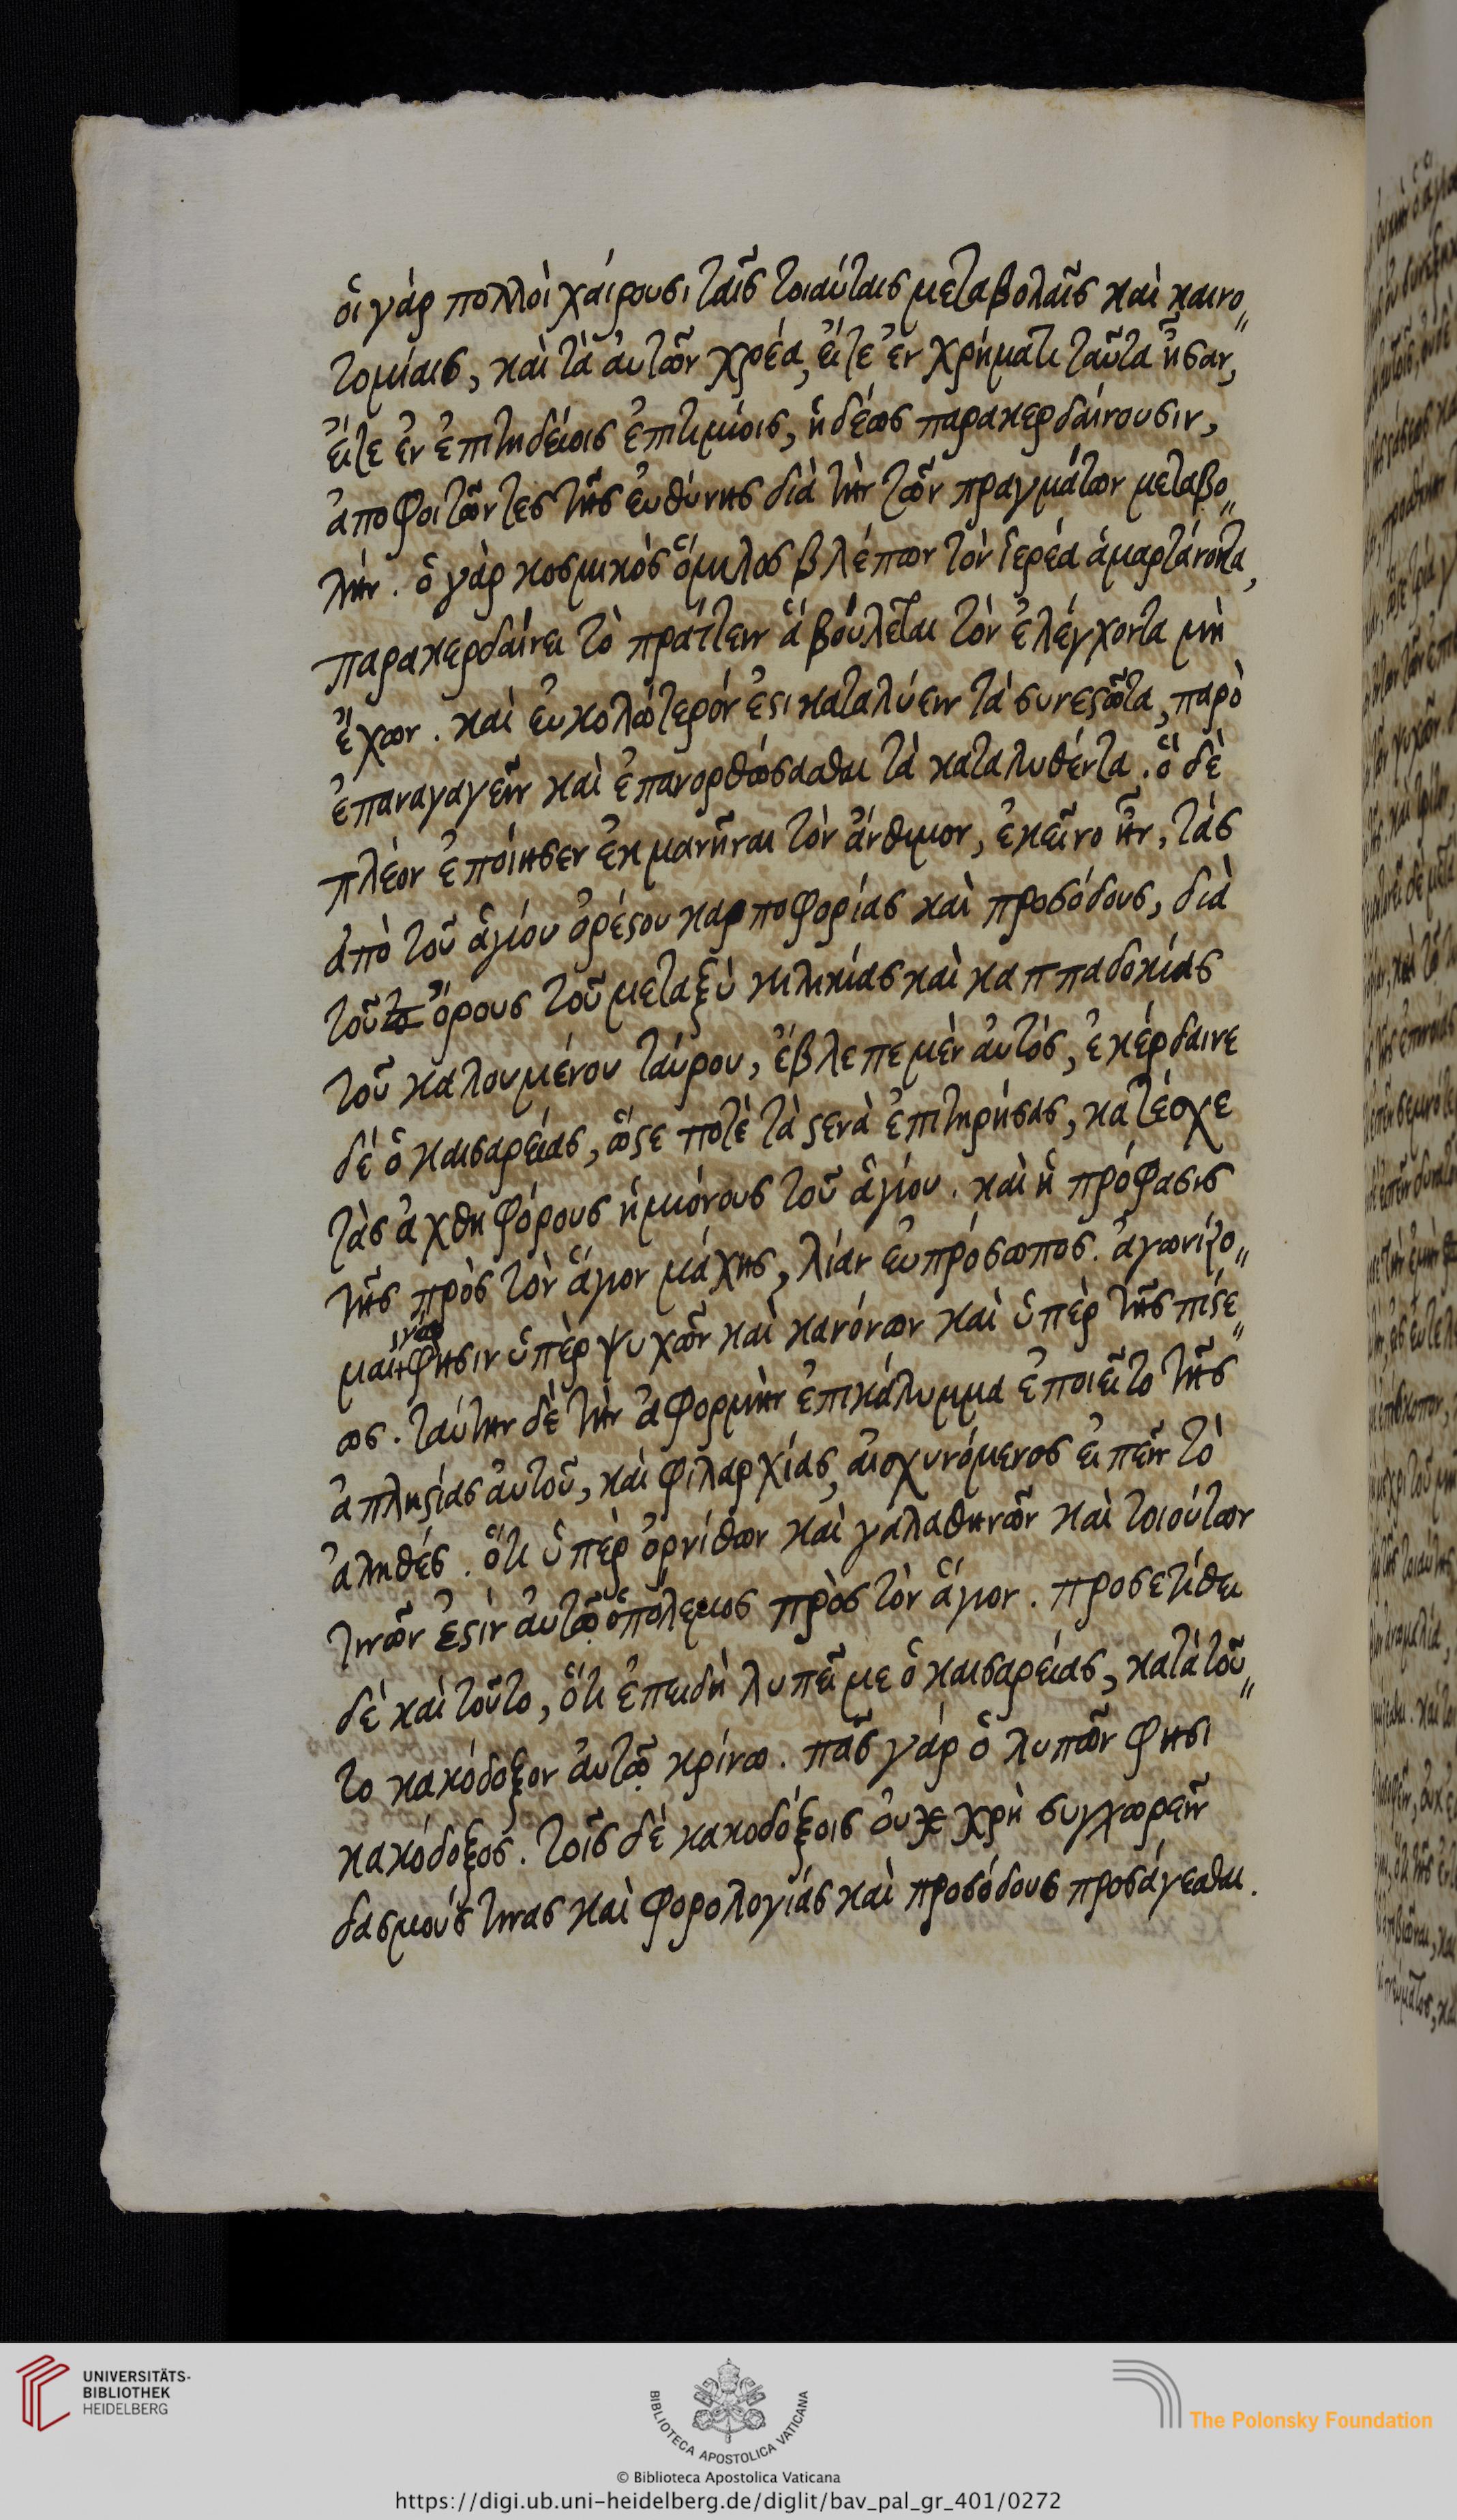 ὁι γὰρ πολλοὶ χαίρουσι ταῖς τοιαύταις μεταβολαῖς καὶ καινο„
τομίαις, καὶ τὰ ἀυτῶν χρέα, ἔιτε ἐν χρήματι ταῦτα ἦσαν,
ἔιτε ἐν ἐπιτηδείοις ἐπιτιμίοις, ἡδέως παρακερδαίνουσιν,
ἀποφοιτῶντες τῆς ἐυθύνης διὰ τὴν τῶν πραγμάτων μεταβο„
λήν. ὁ γὰρ κοσμικὸς ὅμιλος βλέπων τὸν ἱερέα ἁμαρτάνοντα,
παρακερδαίνει τὸ πράττειν ἃ βούλεται τὸν ἐλέγχοντα μὴ
ἔχων. καὶ ἐυκολώτερόν ἐϛι καταλύειν τὰ συνεϛῶτα, παρὸ
ἐπαναγαγεῖν καὶ ἐπανορθώσασθαι τὰ καταλυθέντα. ὃ δὲ
πλέον ἐποίησεν ἐκμανῆναι τὸν ἄνθιμον, ἐκεῖνο ἦν, τὰς
ἀπὸ τοῦ ἁγίου ὀρέϛου καρποφορίας καὶ προσόδους, διὰ
τοῦ ὄρους τοῦ μεταξὺ κιλικίας καὶ καππαδοκίας
τοῦ καλουμένου ταύρου, ἔβλεπε μὲν ἀυτὸς, ἐκέρδαινε
δὲ ὁ καισαρείας, ὥϛε ποτὲ τὰ ϛενὰ ἐπιτηρήσας, κατέσχε
τὰς ἀχθηφόρους ἡμιόνους τοῦ ἁγίου. καὶ ἡ πρόφασις
τῆς πρὸς τὸν ἅγιον μάχης, λίαν ἐυπρόσωπος. ἀγωνίζο„
μαι γὰρ φησιν ὑπὲρ ψυχῶν καὶ κανόνων καὶ ὑπὲρ τῆς πίϛε„
ως. ταύτην δὲ τὴν ἀφορμὴν ἐπικάλυμμα ἐποιεῖτο τῆς
ἀπληϛίας ἀυτοῦ, καὶ φιλαρχίας, αἰσχυνόμενος ἐιπεῖν τὸ
ἀληθές. ὅτι ὑπὲρ ὀρνίθων καὶ γαλαθηνῶν καὶ τοιούτων
τινῶν ἐϛὶν ἀυτῷ ὁ πόλεμος πρὸς τὸν ἅγιον. προσετίθει
δὲ καὶ τοῦτο, ὅτι ἐπειδὴ λυπεῖ με ὁ καισαρείας, κατὰ τοῦ„
το κακόδοξον ἀυτῷ κρίνω. πᾶς γάρ ὁ λυπῶν φησι
κακόδοξος. τοῖς δὲ κακοδόξοις ὀυ χρὴ συγχωρεῖν
δασμούς τινας καὶ φορολογίας καὶ προσόδους προσάγεσθαι.
UNIVERSITÄTS-
BIBLIOTHEK
HEIDELBERG
BIBLIOTECA APOSTOLICA VATICANA
© Biblioteca Apostolica Vaticana
The Polonsky Foundation
https://digi.ub.uni-heidelberg.de/diglit/bav_pal_gr_401/0272